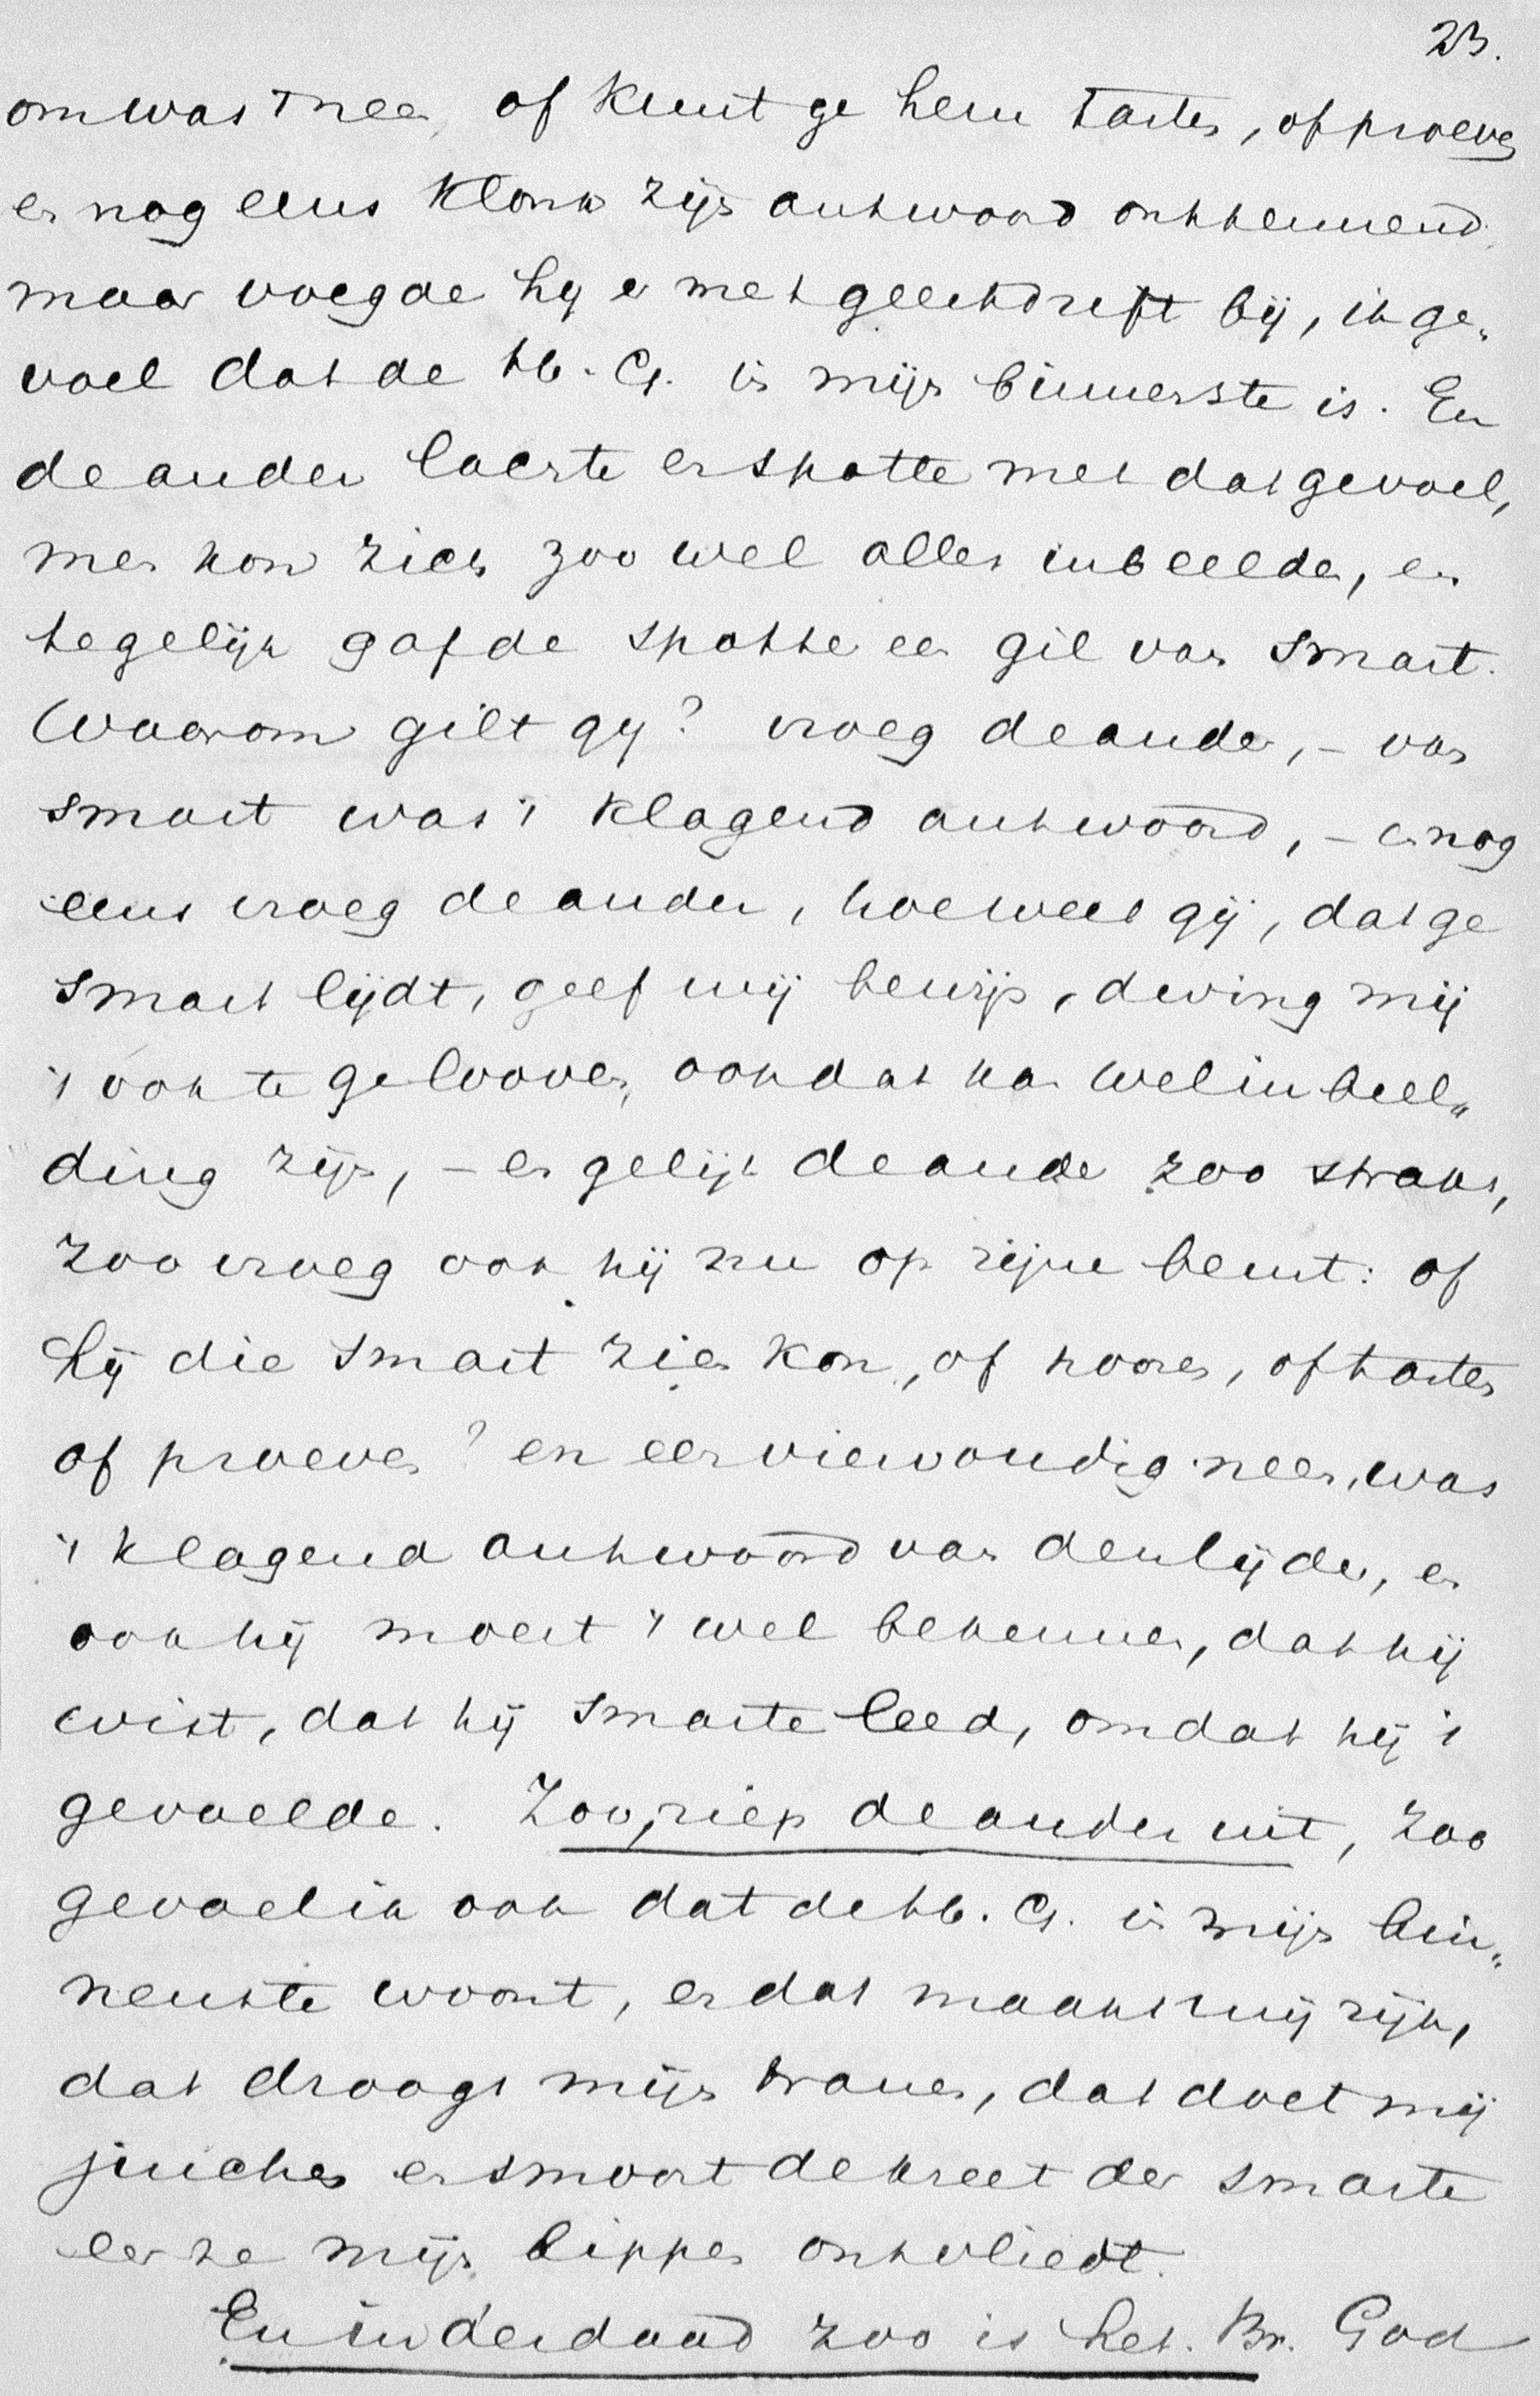 23.
om was 't nee, of kunt ge hem tasten, of proeven
en nog eens klonk zijn antwoord ontkennend,
maar voegde hij er met geestdrift bij, ik ge„
voel dat de H. G. in mijn binnenste is. En
de ander lachte en spotte met dat gevoel,
men kon zich zoo wel alles inbeelden, en
tegelijk gaf de spotter een gil van smart.
Waarom gilt gij? vroeg de ander, – van
smart was 't klagend antwoord, – en nog
eens vroeg de ander, hoe weet gij, dat ge
smart lijdt, geef mij bewijs, dwing mij
't ook te gelooven, ook dat kan wel inbeel„
ding zijn, – en gelijk de ander zoo straks,
zoo vroeg ook hij nu op zijne beurt: of
hij die smart zien kon, of hooren, of tasten
of proeven? en een viervoudig neen, was
't klagend antwoord van den lijder, en
ook hij moest 't wel bekennen, dat hij
wist, dat hij smarte leed, omdat hij 't
gevoelde. Zoo, riep de ander uit, zoo
gevoel ik ook dat de H. G. in mijn bin„
nenste woont, en dat maakt mij rijk,
dat droogt mijn tranen, dat doet mij
juichen en smoort de kreet der smarte
eer ze mijn lippen ontvliedt.
En inderdaad zoo is het. Br. God